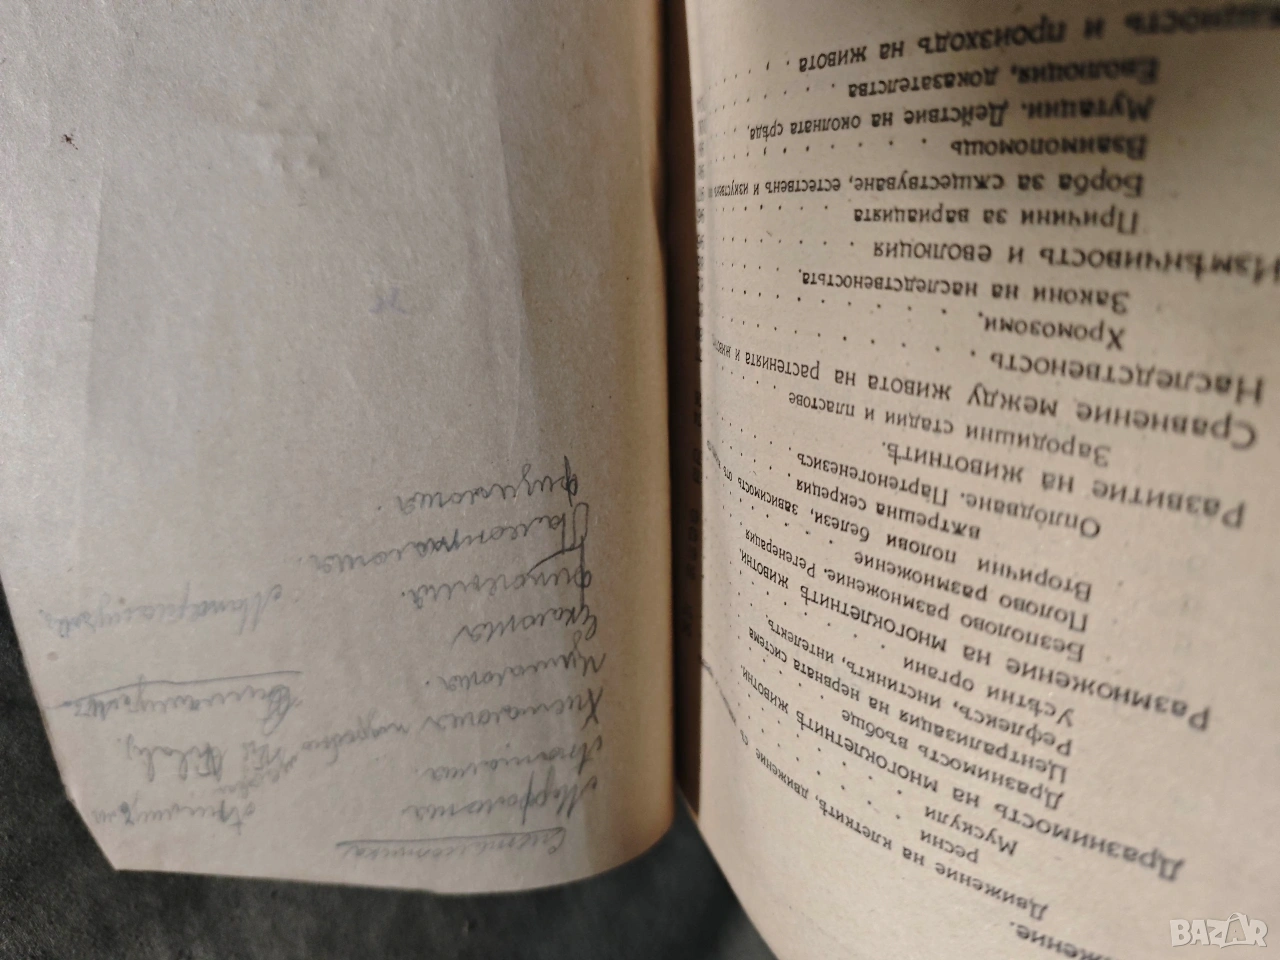 Движение на клеткитѣ, движение съ
ресни
Мускули
Дразнимость на многоклетнитѣ животни.
Дразнимость въобще
Централизация на нервната система
Рефлексъ, инстинктъ, интелектъ
Усѣтни органи
Размножение на многоклетнитѣ животни.
Безполово размножение. Регенерация
Полово размножение
Вторични полови белези, зависимость отъ
вжтрешна секреция
Оплодване. Партеногенезисъ
Развитие на животнитѣ.
Зародишни стадии и пластове
Сравнение между живота на растенията и
Наследственость
Хромозоми.
Закони на наследствеността.
Измѣнчивость и еволюция
Причини за вариацията
Борба за сжществуване, естественъ и
Взаимопомощь
Мутации. Действие на околната срѣда.
Еволюция, доказателства
и произходъ на живота
Систематика
Морфология
Анатомия.
Хистология
Цитология.
Екология
Палеонтология.
физиология
BAZAR